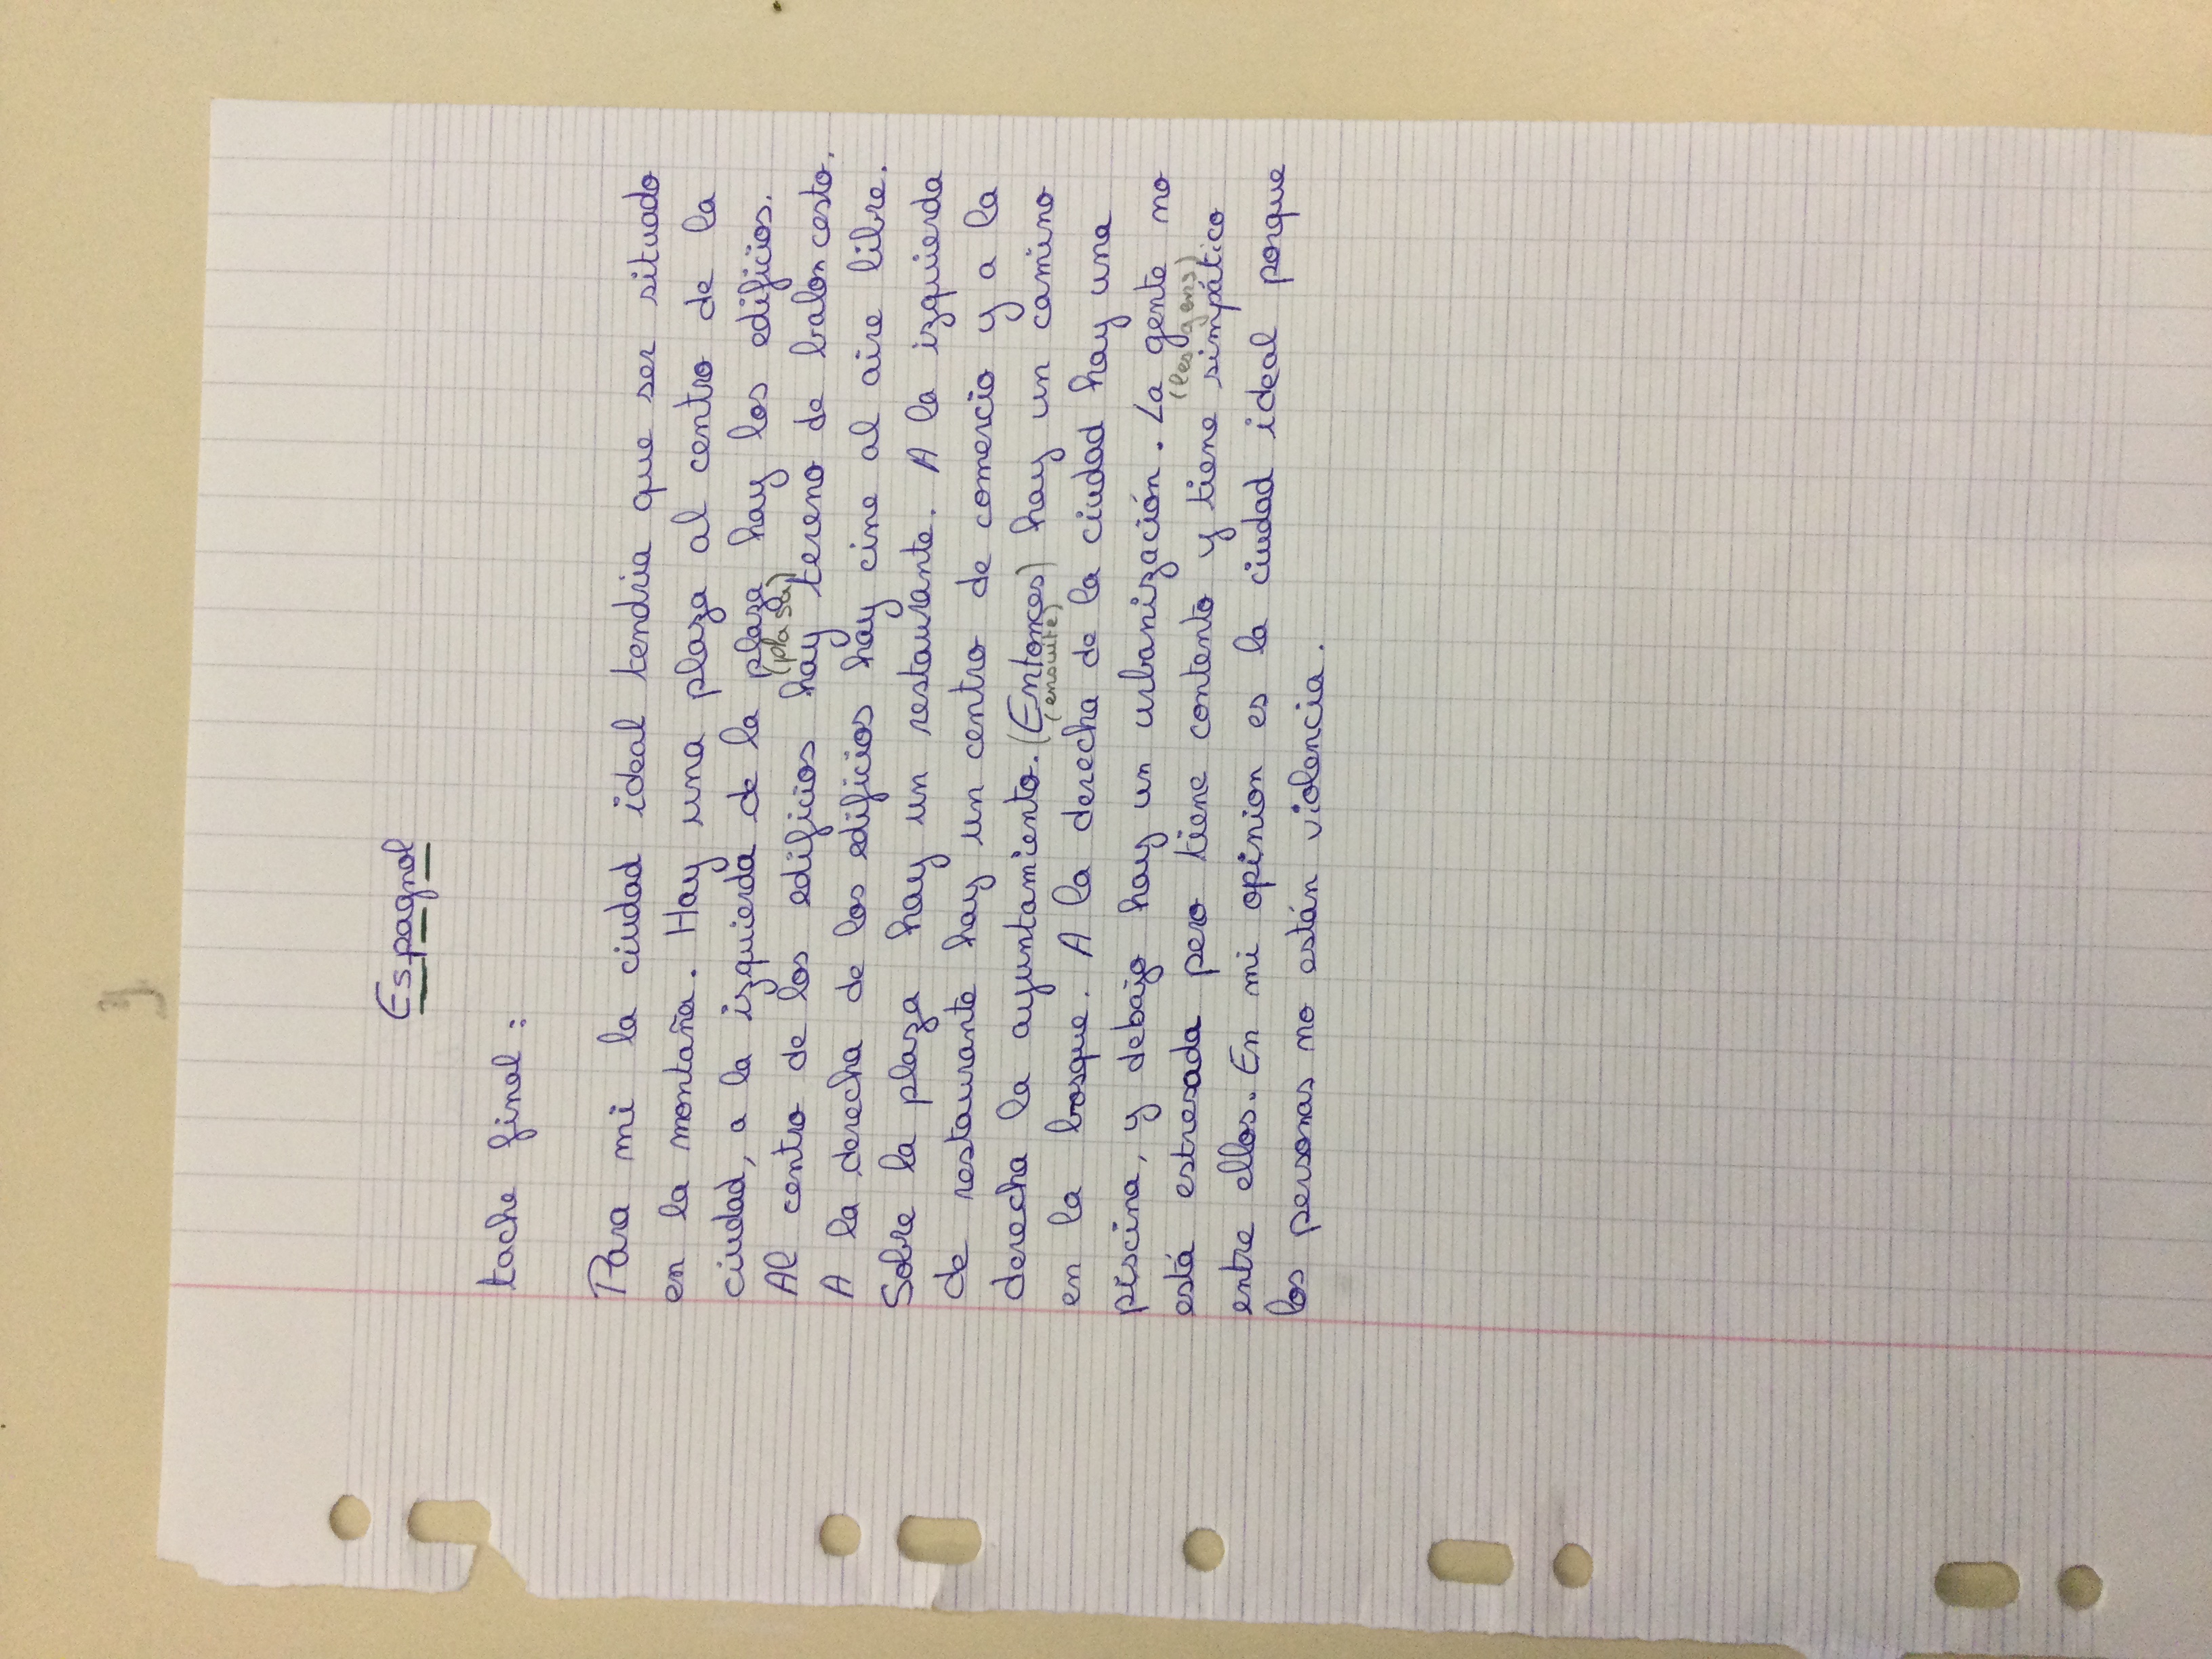 Espagnol
tache final :
Para mi la ciudad ideal tendria que ser situado
en la montaña. Hay una plaza al centro de la
ciudad, a la izquierda de la plaza hay los edificios.
(plasa)
Al centro de los edificios hay tereno de baloncesto.
A la derecha de los edificios hay cine al aire libre.
Sobre la plaza hay un restaurante. A la izquierda
de restaurante hay un centro de comercio y a la
derecha la ayuntamiento. (Entonces) hay un camino
(ensuite)
en la bosque. A la derecha de la ciudad hay una
piscina, y debajo hay un urbanización. La gente no
(les gens)
está estresada pero tiene contento y tiene simpático
entre ellos. En mi opinion es la ciudad ideal porque
los personas no están violencia.